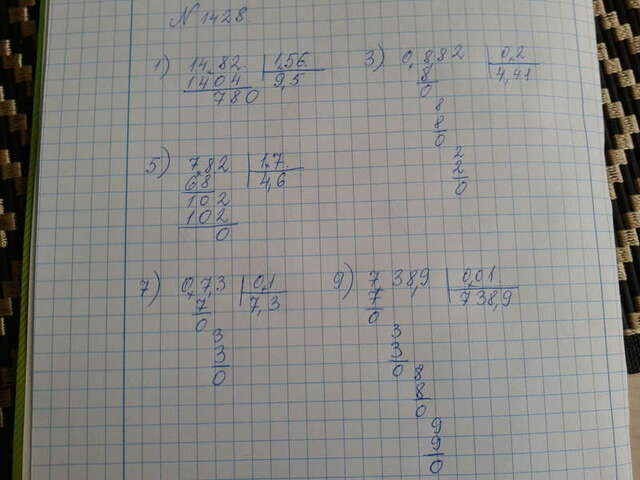 N 1428
1) 14,82 | 1,56
14,04 | 9,5
780
3) 0,882 | 0,2
8 | 4,41
0
8
8
0
2
2
0
5) 7,82 | 1,7
6,8 | 4,6
102
102
0
7) 0,73 | 0,1
7 | 7,3
0
3
3
0
9) 7,389 | 0,01
7 | 738,9
0
3
3
0
8
8
0
9
9
0